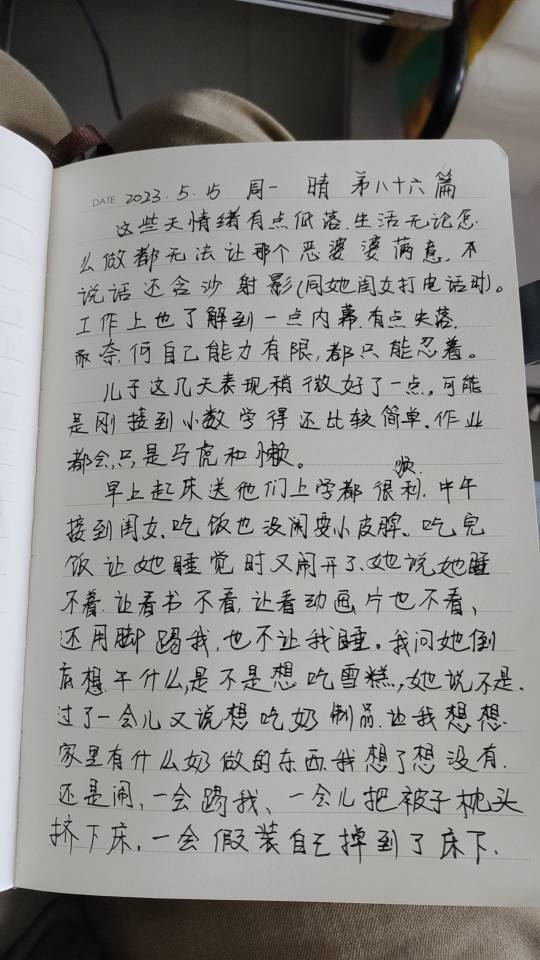 DATE 2023.5.15 周一 晴 第八十六篇
这些天情绪有点低落.生活无论怎
么做都无法让那个恶婆婆满意,不
说话还含沙射影(同她闺女打电话时)。
工作上也了解到一点内幕.有点失落.
奈何自己能力有限,都只能忍着。
儿子这几天表现稍微好了一点,可能
是刚接到小数学得还比较简单.作业
都会,只是马虎和懒。
早上起床送他们上学都很顺利.中午
接到闺女.吃饭也没闹耍小皮脾。吃完
饭让她睡觉时又闹开了、她说她睡
不着.让看书不看,让看动画片也不看、
还用脚踢我,也不让我睡。我问她倒
底想干什么,是不是想吃雪糕,她说不是.
过了一会儿又说想吃奶制品.让我想想
家里有什么奶做的东西.我想了想没有.
还是闹,一会踢我、一会儿把被子枕头
挤下床,一会假装自己掉到了床下.